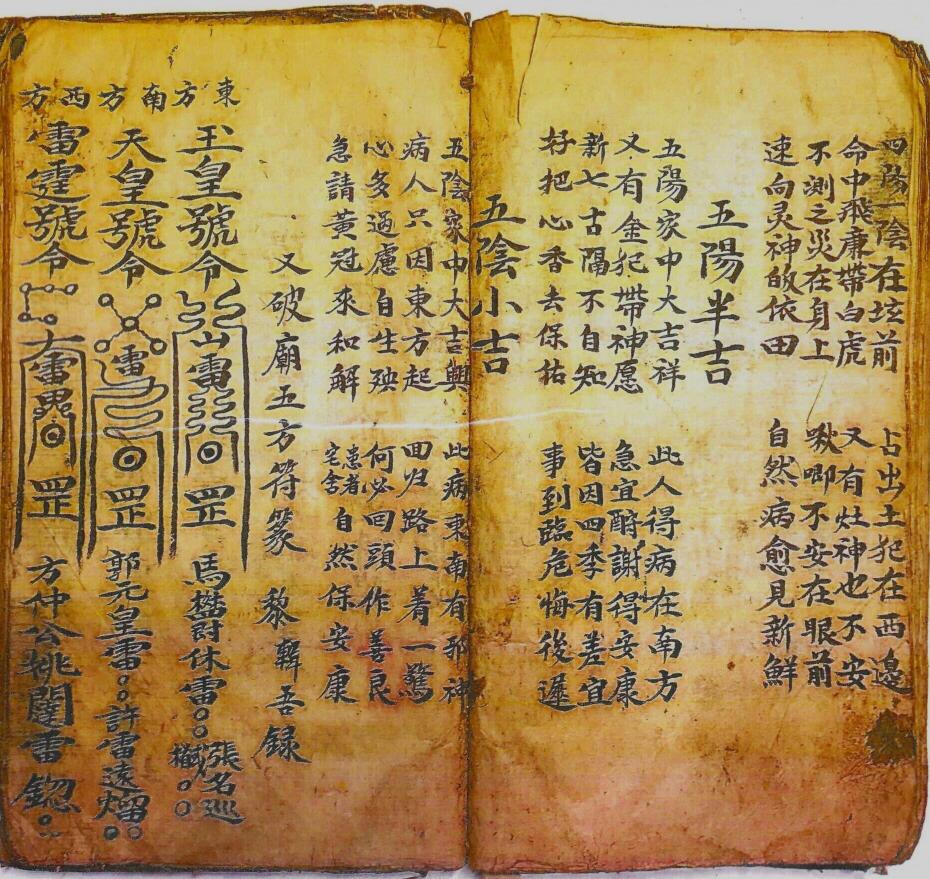 四陽一陰在垓前 占出土犯在西邉
命中飛廉帶白虎 又有灶神也不安
不測之災在身上 啾唧不安在眼前
速向灵神皈依田 自然病愈見新鮮
五陽半吉
五陽家中大吉祥 此人得病在南方
又有金犯帶神愿 急宜酧謝得安康
新七古隔不自知 皆因四季有差宜
好把心香去保佑 事到臨危悔後遲
五陰小吉
五陰家中大吉興 此病東南有邪神
病人只因東方起 回归路上着一驚
心多過慮自生殃 何必回頭作善良
急請黃冠來和解 患者宅舍自然保安康
又破廟五方符篆 黎 吾録
東方南方西方
玉皇號令 雷 罡 馬 討休雷 張名巡
天皇號令 雷 罡 郭元皇雷 許雷遠
雷霆號令 雷 罡 方仲公姚 雷